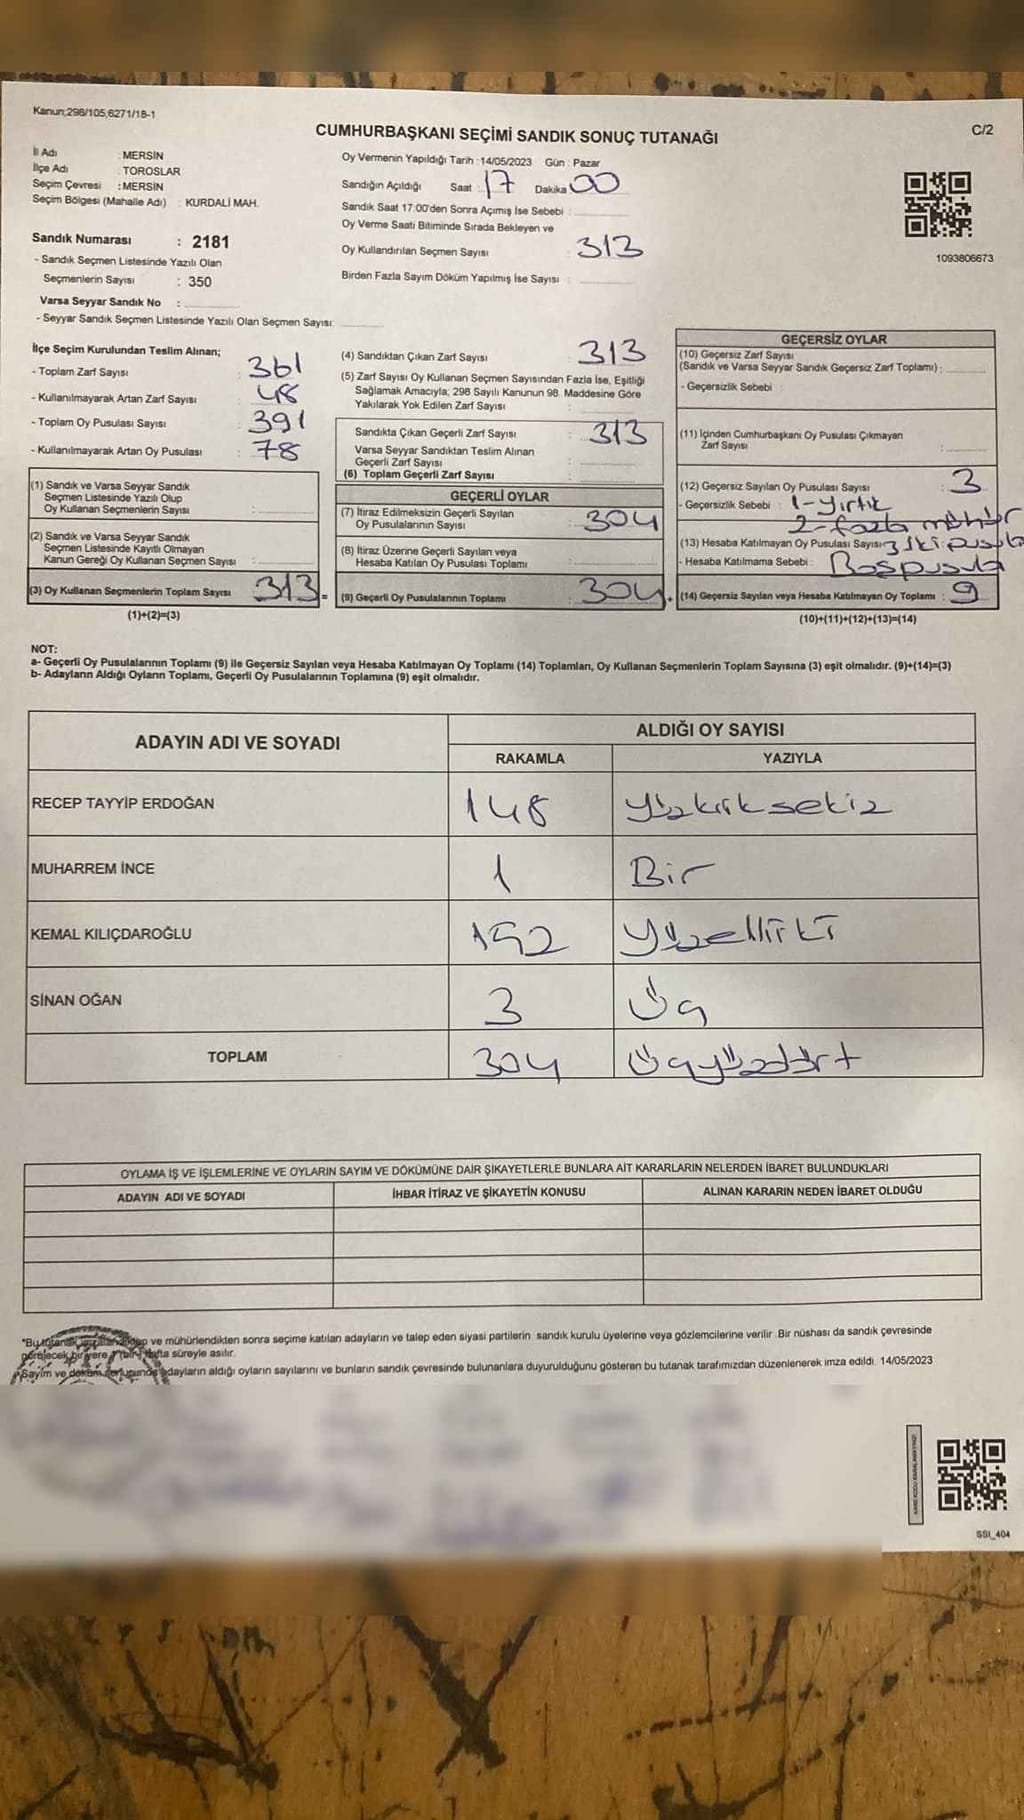 Kanun;298/105,6271/18-1
C/2
CUMHURBAŞKANI SEÇİMİ SANDIK SONUÇ TUTANAĞI
İl Adı : MERSİN
İlçe Adı : TOROSLAR
Seçim Çevresi : MERSİN
Seçim Bölgesi (Mahalle Adı) : KURDALİ MAH.
Sandık Numarası : 2181
- Sandık Seçmen Listesinde Yazılı Olan
Seçmenlerin Sayısı : 350
Varsa Seyyar Sandık No :
- Seyyar Sandık Seçmen Listesinde Yazılı Olan Seçmen Sayısı:
Oy Vermenin Yapıldığı Tarih :14/05/2023 Gün : Pazar
Sandığın Açıldığı Saat : 17 Dakika 00
Sandık Saat 17:00'den Sonra Açımış İse Sebebi :
Oy Verme Saati Bitiminde Sırada Bekleyen ve
Oy Kullandırılan Seçmen Sayısı : 313
Birden Fazla Sayım Döküm Yapılmış İse Sayısı :
1093806673
İlçe Seçim Kurulundan Teslim Alınan;
- Toplam Zarf Sayısı : 361
- Kullanılmayarak Artan Zarf Sayısı : 48
- Toplam Oy Pusulası Sayısı : 391
- Kullanılmayarak Artan Oy Pusulası : 78
(1) Sandık ve Varsa Seyyar Sandık
Seçmen Listesinde Yazılı Olup
Oy Kullanan Seçmenlerin Sayısı :
(2) Sandık ve Varsa Seyyar Sandık
Seçmen Listesinde Kayıtlı Olmayan
Kanun Gereği Oy Kullanan Seçmen Sayısı :
(3) Oy Kullanan Seçmenlerin Toplam Sayısı 313 =
(1)+(2)=(3)
(4) Sandıktan Çıkan Zarf Sayısı : 313
(5) Zarf Sayısı Oy Kullanan Seçmen Sayısından Fazla İse, Eşitliği
Sağlamak Amacıyla, 298 Sayılı Kanunun 98. Maddesine Göre
Yakılarak Yok Edilen Zarf Sayısı :
Sandıkta Çıkan Geçerli Zarf Sayısı : 313
Varsa Seyyar Sandıktan Teslim Alınan
Geçerli Zarf Sayısı :
(6) Toplam Geçerli Zarf Sayısı :
GEÇERLİ OYLAR
(7) İtiraz Edilmeksizin Geçerli Sayılan
Oy Pusulalarının Sayısı : 304
(8) İtiraz Üzerine Geçerli Sayılan veya
Hesaba Katılan Oy Pusulası Toplamı :
(9) Geçerli Oy Pusulalarının Toplamı : 304 +
GEÇERSİZ OYLAR
(10) Geçersiz Zarf Sayısı
(Sandık ve Varsa Seyyar Sandık Geçersiz Zarf Toplamı) :
- Geçersizlik Sebebi :
(11) İçinden Cumhurbaşkanı Oy Pusulası Çıkmayan
Zarf Sayısı :
(12) Geçersiz Sayılan Oy Pusulası Sayısı : 3
- Geçersizlik Sebebi : 1-yırtık
2-fazla mühür
(13) Hesaba Katılmayan Oy Pusulası Sayısı: 3 İki pusula
- Hesaba Katılmama Sebebi : Boş pusula
(14) Geçersiz Sayılan veya Hesaba Katılmayan Oy Toplamı : 9
(10)+(11)+(12)+(13)=(14)
NOT:
a- Geçerli Oy Pusulalarının Toplamı (9) ile Geçersiz Sayılan veya Hesaba Katılmayan Oy Toplamı (14) Toplamları, Oy Kullanan Seçmenlerin Toplam Sayısına (3) eşit olmalıdır. (9)+(14)=(3)
b- Adayların Aldığı Oyların Toplamı, Geçerli Oy Pusulalarının Toplamına (9) eşit olmalıdır.
ADAYIN ADI VE SOYADI
ALDIĞI OY SAYISI
RAKAMLA YAZIYLA
RECEP TAYYİP ERDOĞAN 148 Yüzkırksekiz
MUHARREM İNCE 1 Bir
KEMAL KILIÇDAROĞLU 152 Yüzelliiki
SİNAN OĞAN 3 Üç
TOPLAM 304 Üçyüzdört
OYLAMA İŞ VE İŞLEMLERİNE VE OYLARIN SAYIM VE DÖKÜMÜNE DAİR ŞİKAYETLERLE BUNLARA AİT KARARLARIN NELERDEN İBARET BULUNDUKLARI
ADAYIN ADI VE SOYADI İHBAR İTİRAZ VE ŞİKAYETİN KONUSU ALINAN KARARIN NEDEN İBARET OLDUĞU
*Bu tutanak imzalandıktan ve mühürlendikten sonra seçime katılan adayların ve talep eden siyasi partilerin sandık kurulu üyelerine veya gözlemcilerine verilir. Bir nüshası da sandık çevresinde
görelecek bir yere 7 (bir) hafta süreyle asılır.
*Sayım ve döküm sonucunda adayların aldığı oyların sayılarını ve bunların sandık çevresinde bulunanlara duyurulduğunu gösteren bu tutanak tarafımızdan düzenlenerek imza edildi. 14/05/2023
SSI_404